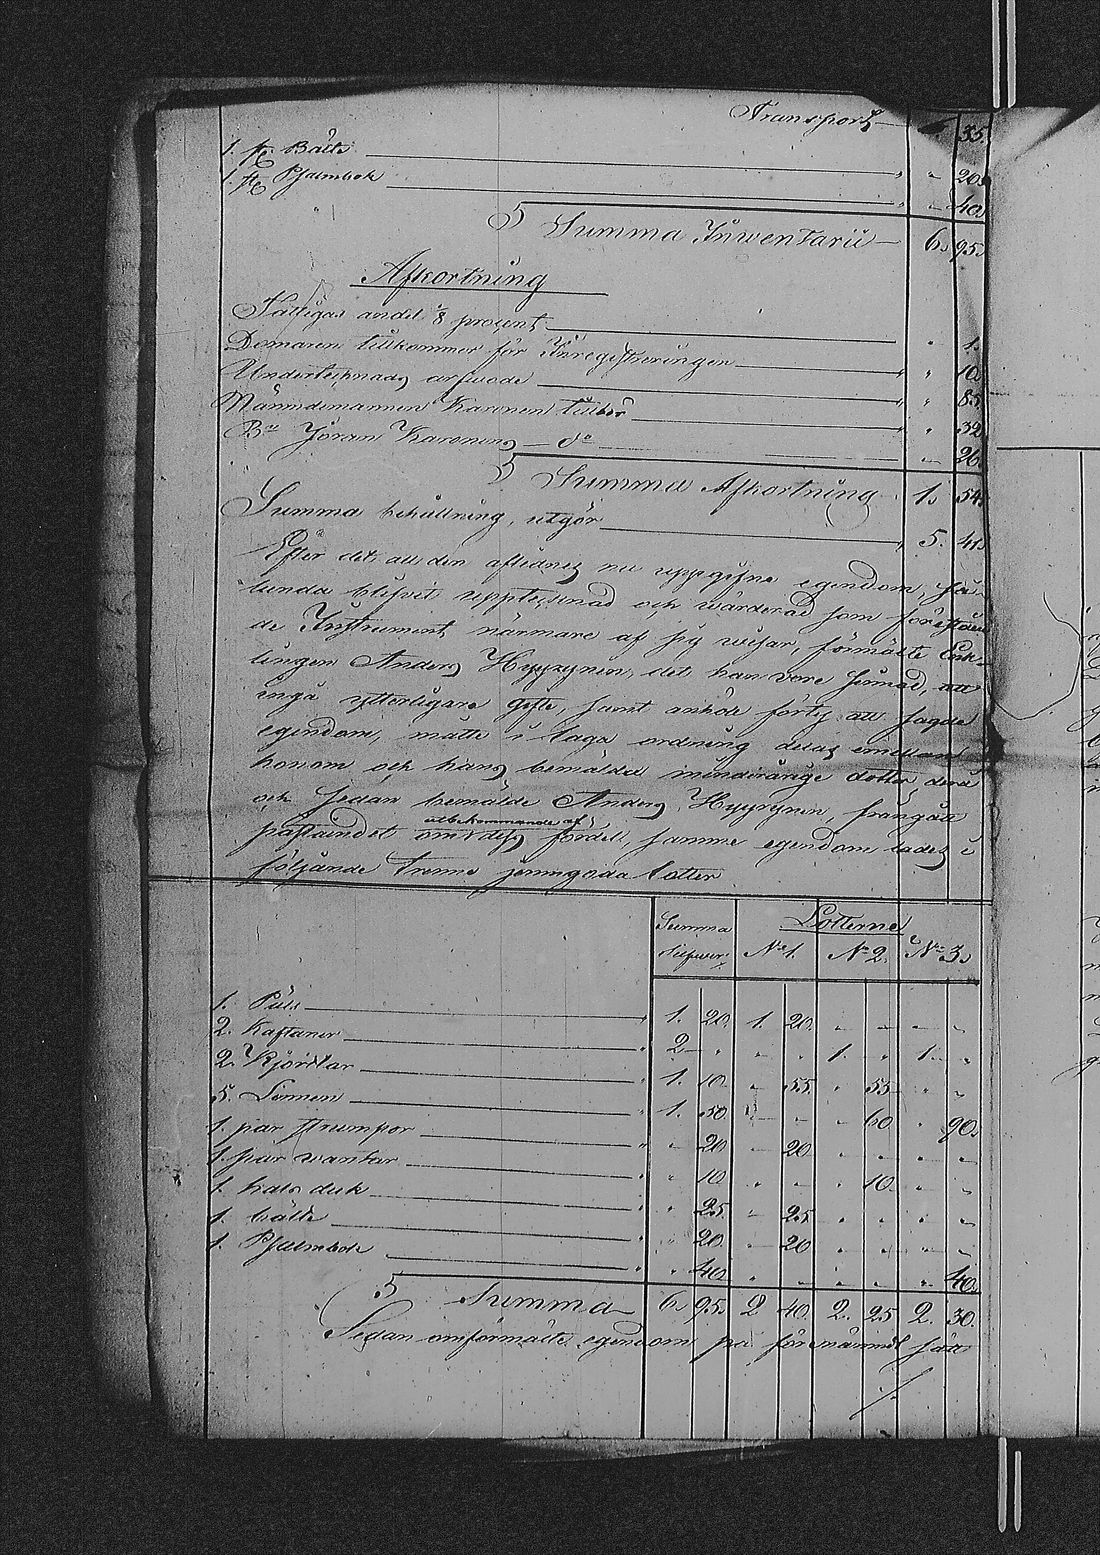 Transport — 6. 35.
1. st. Bälte — " " 20.
1. st. Psalmbok — " " 40.
S Summa Inwentarii — 6. 95.
Afkortning
Fattigas andel 1/8 procent — " 1.
Domaren tillkommer för Inregistreringen — " " 10.
Undertecknads arfwode — " " 85.
Nämndemannen Karonen tillhör — " " 32.
Bn Jöran Karonens — do — " 26.
S Summa Afkortning 1. 54.
Summa behållning, utgör — " 5. 41.
Efter det, att den aflednes nu uppgifne egendom, så-
lunda blifvit upptecknad och wärderad som förestående
de Instrument närmare af sig wisar, förmälte Enk-
lingen Anders Hyyrynen, det han vore sinnad, att
ingå ytterligare gifte, samt anhöll förty att sagde
egendom, måtte i laga ordning delas emellan
honom och hans bemälda minderårige dotter, derå
och sedan bemälde Anders Hyyrynen, frångått
utbekommande af
påståendet om dess fördel, samme egendom lades i
följande trenne jemngoda lotter
Summa Lotterne
No 1. No 2. No 3.
1. Päls — " 1. 20. 1. 20. " " " "
2. Kaftaner — " 2 " " " 1. " 1. "
2. Kjortlar — " 1. 10 " 55. " 55 " "
5. Linnen — " 1. 50 " " " 60 " 90.
1. par strumpor — " " 20 " 20 " " " "
1. par wantar — " " 10 " " " 10 " "
1. hals duk — " " 25. " 25 " " " "
1. bälte — " " 20. " 20 " " " "
1. Psalmbok — " " 40. " " " " " 40.
S Summa 6. 95. 2 40. 2. 25 2. 30.
Sedan omförmälte egendom på förenämndt sätt